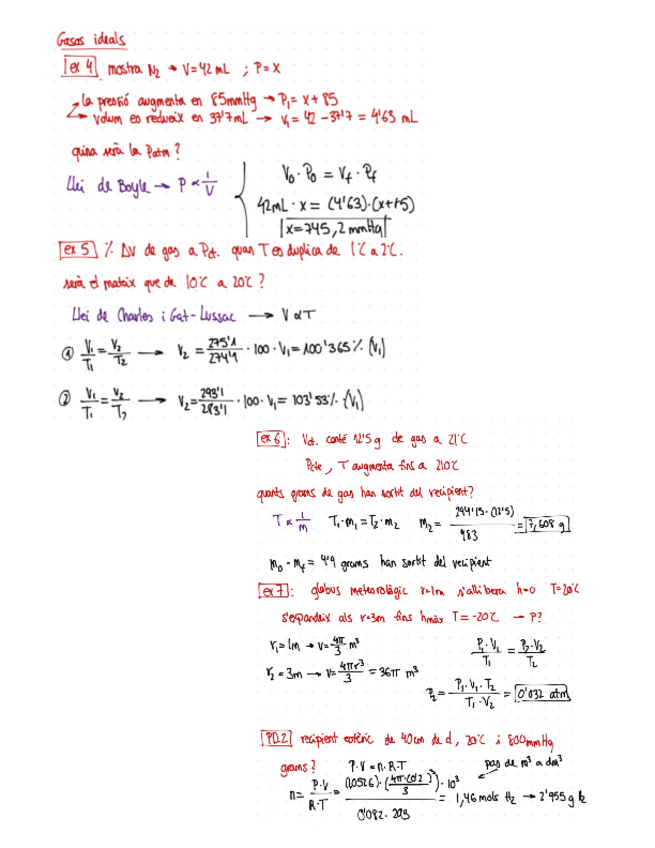 Gasos ideals
ex 4 mostra N₂ → V=42 mL ; P=x
La pressió augmenta en 85mmHg → P₁= x+85
Volum es redueix en 37'7mL → V₁ = 42 -37'7 = 4'63 mL
quina serà la Patm?
Llei de Boyle → P ∝ 1/V
V₀·P₀ = Vf·Pf
42mL · x = (4'63)·(x+85)
x=745,2 mmHg
ex 5 % ΔV de gas a Pct. quan T es duplica de 1°C a 2°C.
serà el mateix que de 10°C a 20°C?
Llei de Charles i Gat-Lussac → V∝T
① V₁/T₁ = V₂/T₂ → V₂ = 275'1/274'1 · 100 · V₁ = 100'365% (V₁)
② V₁/T₁ = V₂/T₂ → V₂ = 293'1/283'1 · 100 · V₁ = 103'53% (V₁)
ex 6: Vct. conté 12'5g de gas a 21°C
Pcte, T augmenta fins a 210°C
quants grams de gas han sortit del recipient?
T ∝ 1/m T₁·m₁ = T₂·m₂ m₂ = 294'15·(12'5)/483 = 7,608 g
m₀ - mf = 4'9 grams han sortit del recipient
ex 7: globus meteorològic r=1m s'allibera h=0 T=20°C
s'expandeix als r=3m fins hmàx T= -20°C → P?
r₁=1m → V=4π/3 m³
r₂ = 3m → V=4πr³/3 = 36π m³
P₁·V₁/T₁ = P₂·V₂/T₂
P₂ = P₁·V₁·T₂/T₁·V₂ = 0'032 atm
PD.2 recipient esfèric de 40cm de d, 20°C i 800mmHg
grams? P·V = n·R·T pas de m³ a dm³
n = P·V/R·T = (1,0526)·(4π·(0'2)³/3)·10³/0'082·293 = 1,46 mols H₂ → 2'955g H₂